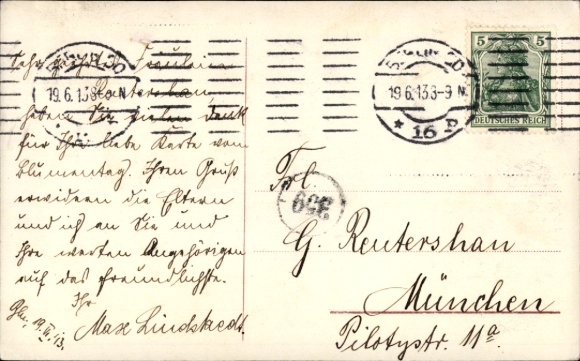 Sehr geehrtes Fräulein
Reutershan,
haben Sie vielen Dank
für Ihre liebe Karte vom
Blumentag. Ihren Gruß
erwidern die Eltern
und ich an Sie und
Ihre werten Angehörigen
auf das freundlichste.
Ihr
Max Lindstaedt.
19.6.13.
19.6.13 8-9 N.
19.6.13 8-9 N.
* 16 P
5 5
DEUTSCHES REICH
359
Frl.
G. Reutershan
München
Pilotystr. 11a